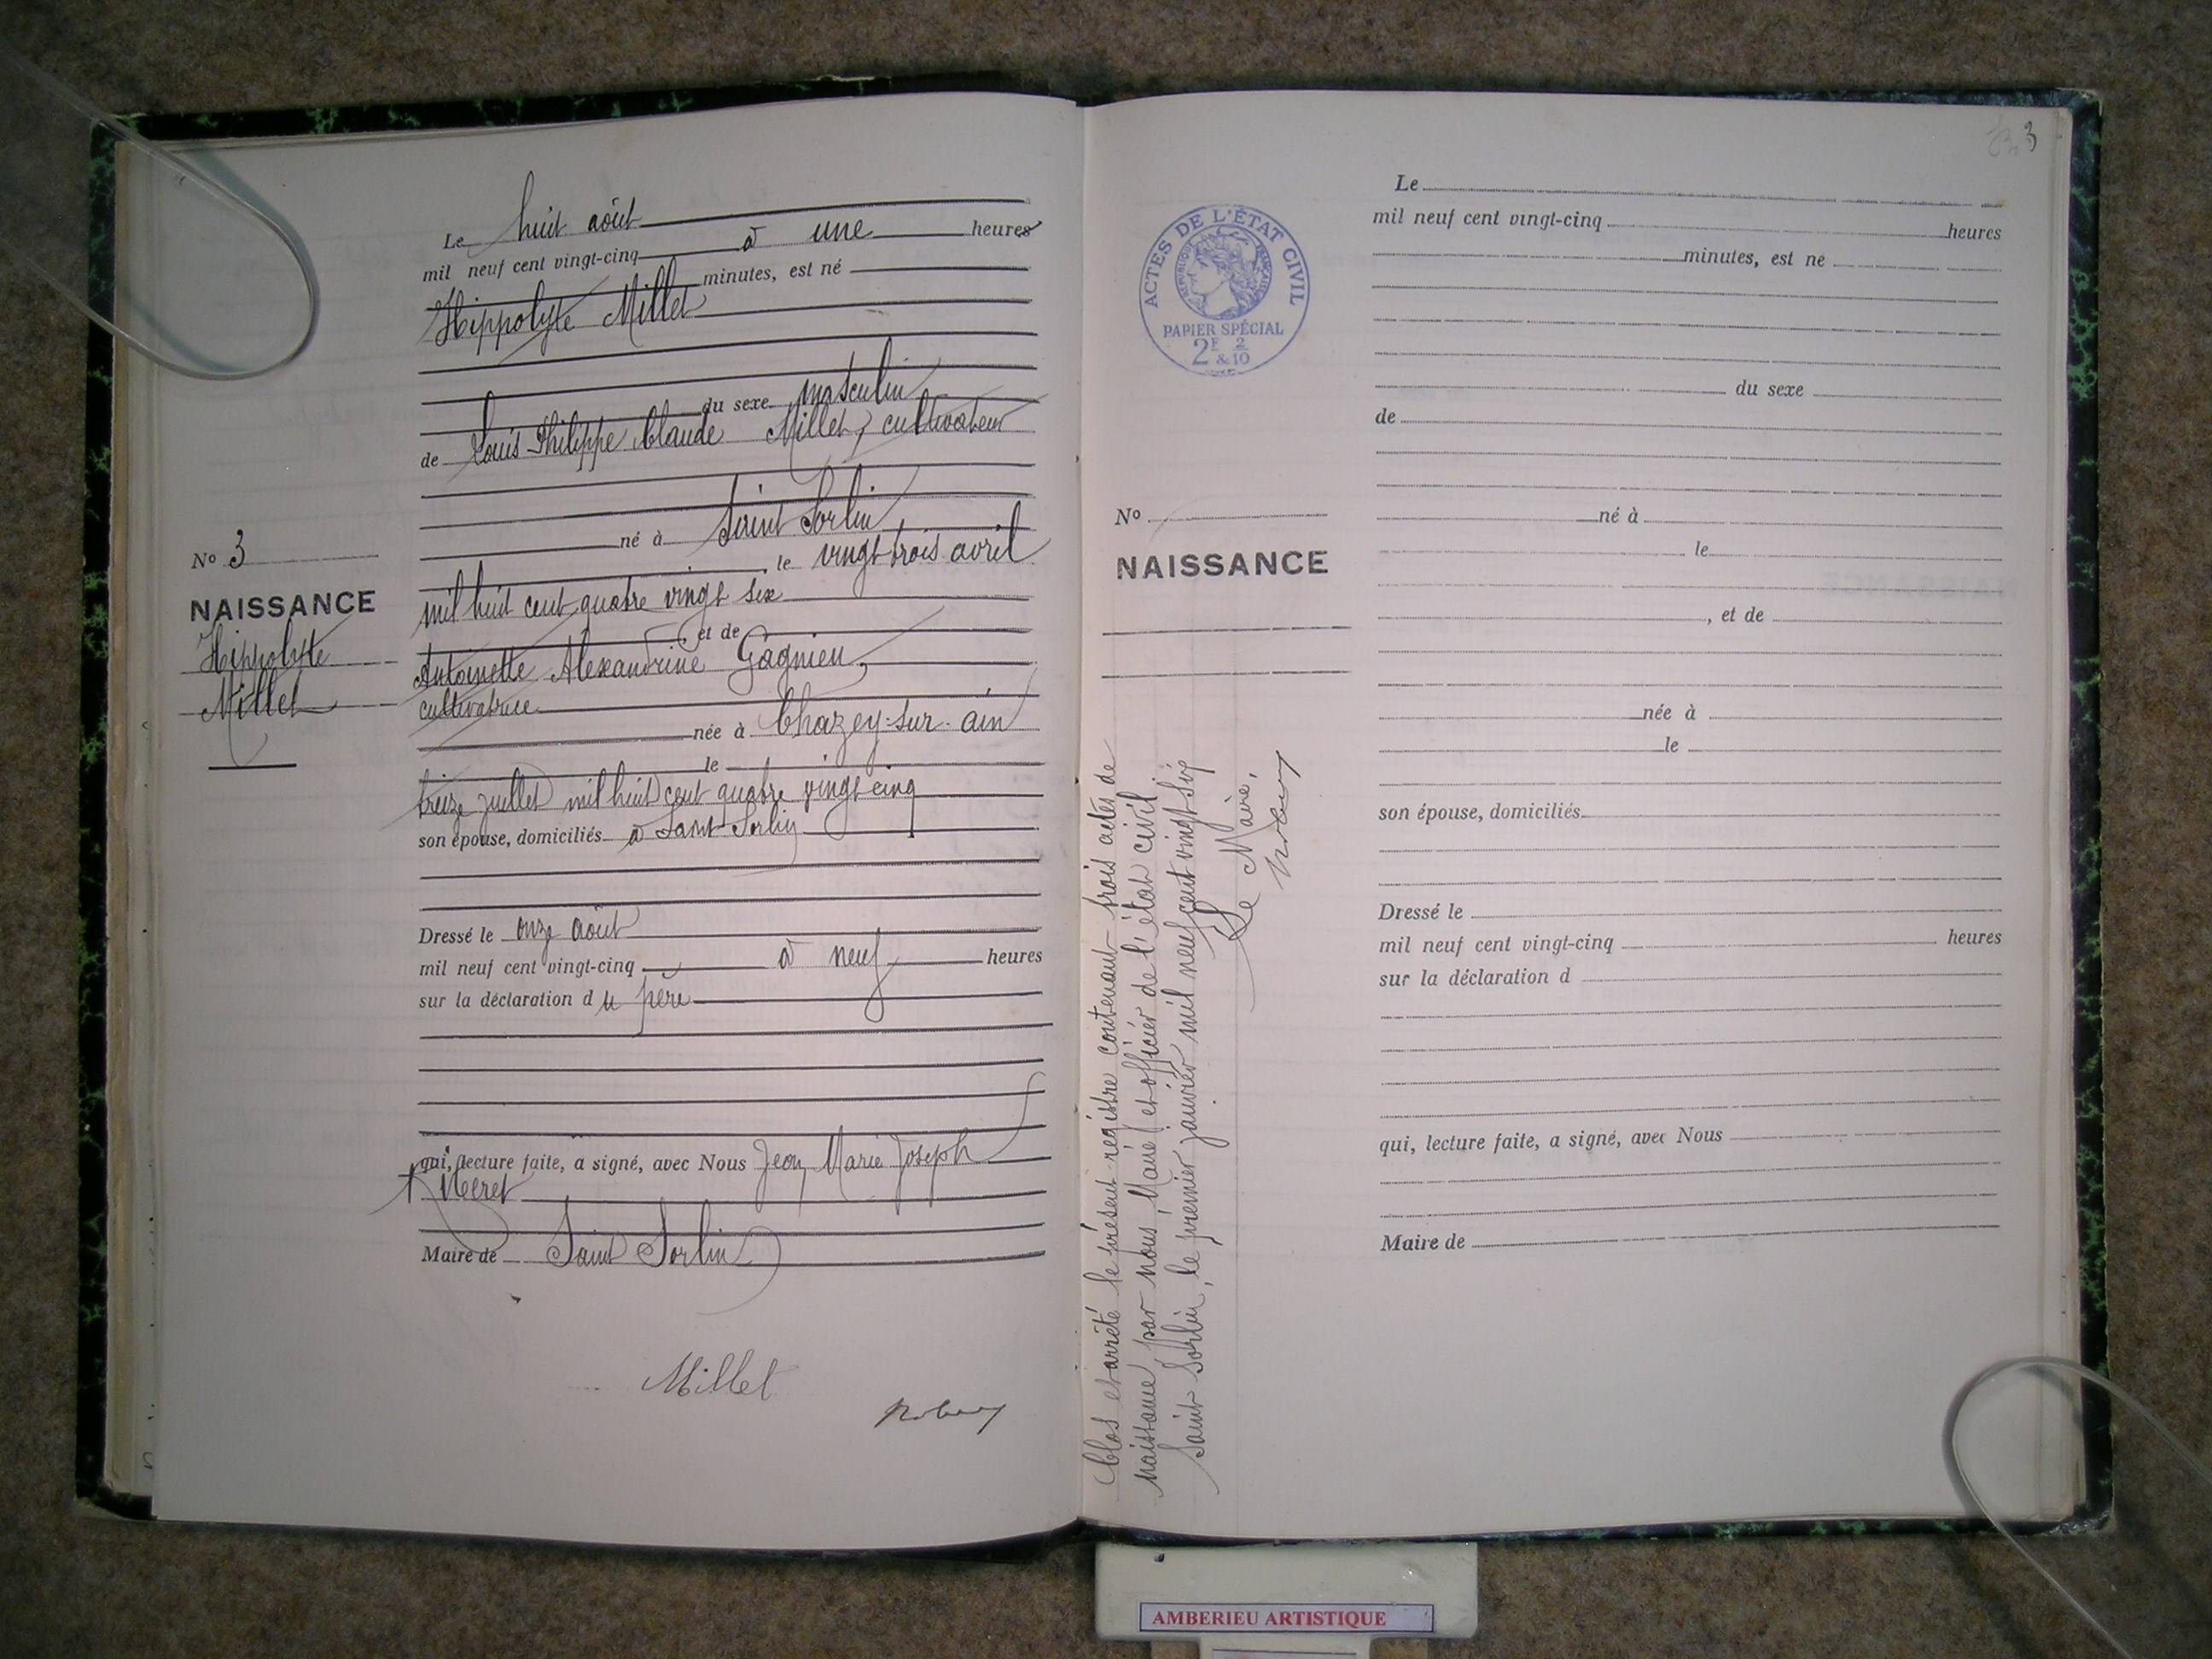 Le huit août
mil neuf cent vingt-cinq à une heures
minutes, est né
Hippolyte Millet
du sexe masculin
de Louis Philippe Claude Millet, cultivateur
né à Saint Sorlin
, le vingt trois avril
mil huit cent quatre vingt six
, et de
Antoinette Alexandrine Gagnieu,
cultivatrice
née à Chazey-sur-ain
le
treize juillet mil huit cent quatre vingt cinq
son épouse, domiciliés à Saint Sorlin
Dressé le onze août
mil neuf cent vingt-cinq à neuf heures
sur la déclaration du père
qui, lecture faite, a signé, avec Nous Jean Marie Joseph
Maire de Saint Sorlin
Millet
No 3
NAISSANCE
Hippolyte
Millet
3
ACTES DE L'ÉTAT CIVIL
RÉPUBLIQUE FRANÇAISE
PAPIER SPÉCIAL
2F 2
&10
No
NAISSANCE
Clos et arrêté le présent registre contenant trois actes de
naissance par nous, Maire et officier de l'état civil
Saint Sorlin, le premier janvier mil neuf cent vingt six
Le Maire,
Le
mil neuf cent vingt-cinq heures
minutes, est né
du sexe
de
né à
le
, et de
née à
le
son épouse, domiciliés
Dressé le
mil neuf cent vingt-cinq heures
sur la déclaration d
qui, lecture faite, a signé, avec Nous
Maire de
AMBERIEU ARTISTIQUE